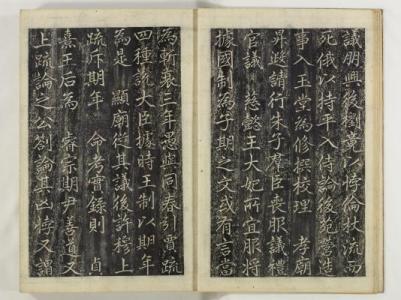 議朋興後劉竟以悖倫杖流而
死俄以持平入侍論後苑營造
事入玉堂為修撰校理 孝廟
昇遐請行朱子羣臣喪服議禮
官議 慈懿王大妃所宜服將
據國制為子期之文或有言當
為斬衰三年愚與同春引賈疏
四種說大臣據時王制以期年
為是 顯廟從其議後許穆上
疏斥期年 命考實錄則 貞
熹王后為 睿宗期尹善道又
上疏論之公劄論其凶悖又謂